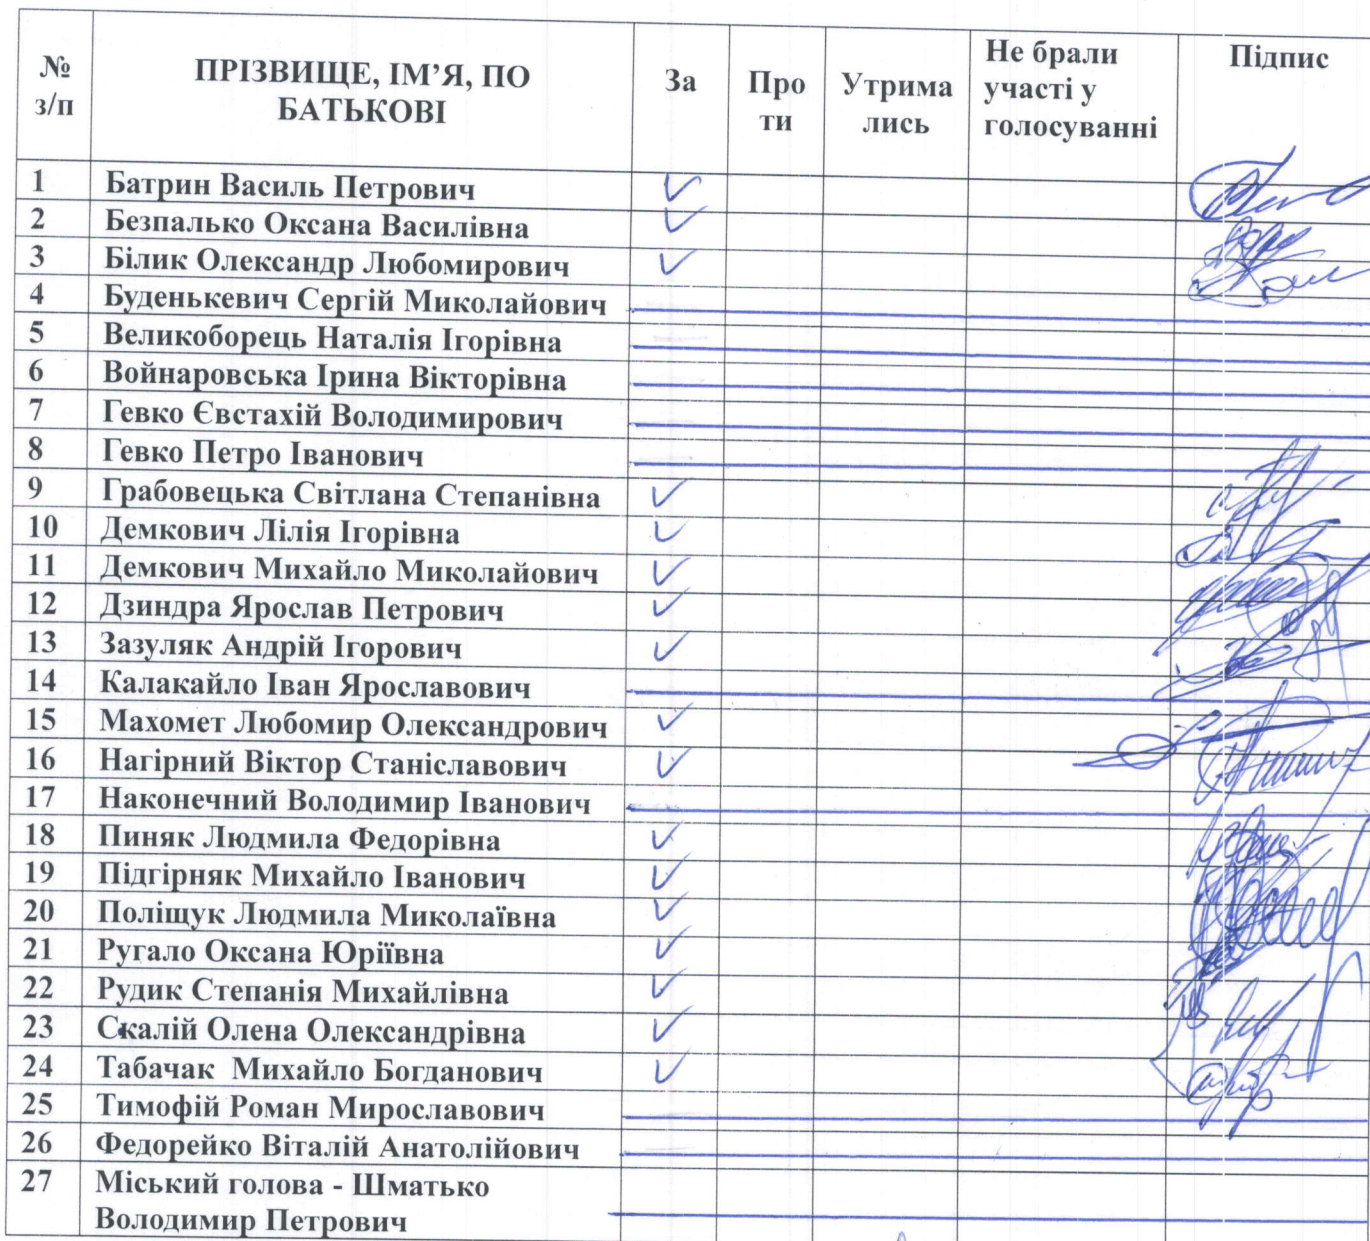 № з/п ПРІЗВИЩЕ, ІМ’Я, ПО БАТЬКОВІ За Про ти Утрима лись Не брали участі у голосуванні Підпис
1 Батрин Василь Петрович ✓
2 Безпалько Оксана Василівна ✓
3 Білик Олександр Любомирович ✓
4 Буденькевич Сергій Миколайович
5 Великоборець Наталія Ігорівна
6 Войнаровська Ірина Вікторівна
7 Гевко Євстахій Володимирович
8 Гевко Петро Іванович
9 Грабовецька Світлана Степанівна ✓
10 Демкович Лілія Ігорівна ✓
11 Демкович Михайло Миколайович ✓
12 Дзиндра Ярослав Петрович ✓
13 Зазуляк Андрій Ігорович ✓
14 Калакайло Іван Ярославович
15 Махомет Любомир Олександрович ✓
16 Нагірний Віктор Станіславович ✓
17 Наконечний Володимир Іванович
18 Пиняк Людмила Федорівна ✓
19 Підгірняк Михайло Іванович ✓
20 Поліщук Людмила Миколаївна ✓
21 Ругало Оксана Юріївна ✓
22 Рудик Степанія Михайлівна ✓
23 Скалій Олена Олександрівна ✓
24 Табачак Михайло Богданович ✓
25 Тимофій Роман Мирославович
26 Федорейко Віталій Анатолійович
27 Міський голова - Шматько
Володимир Петрович